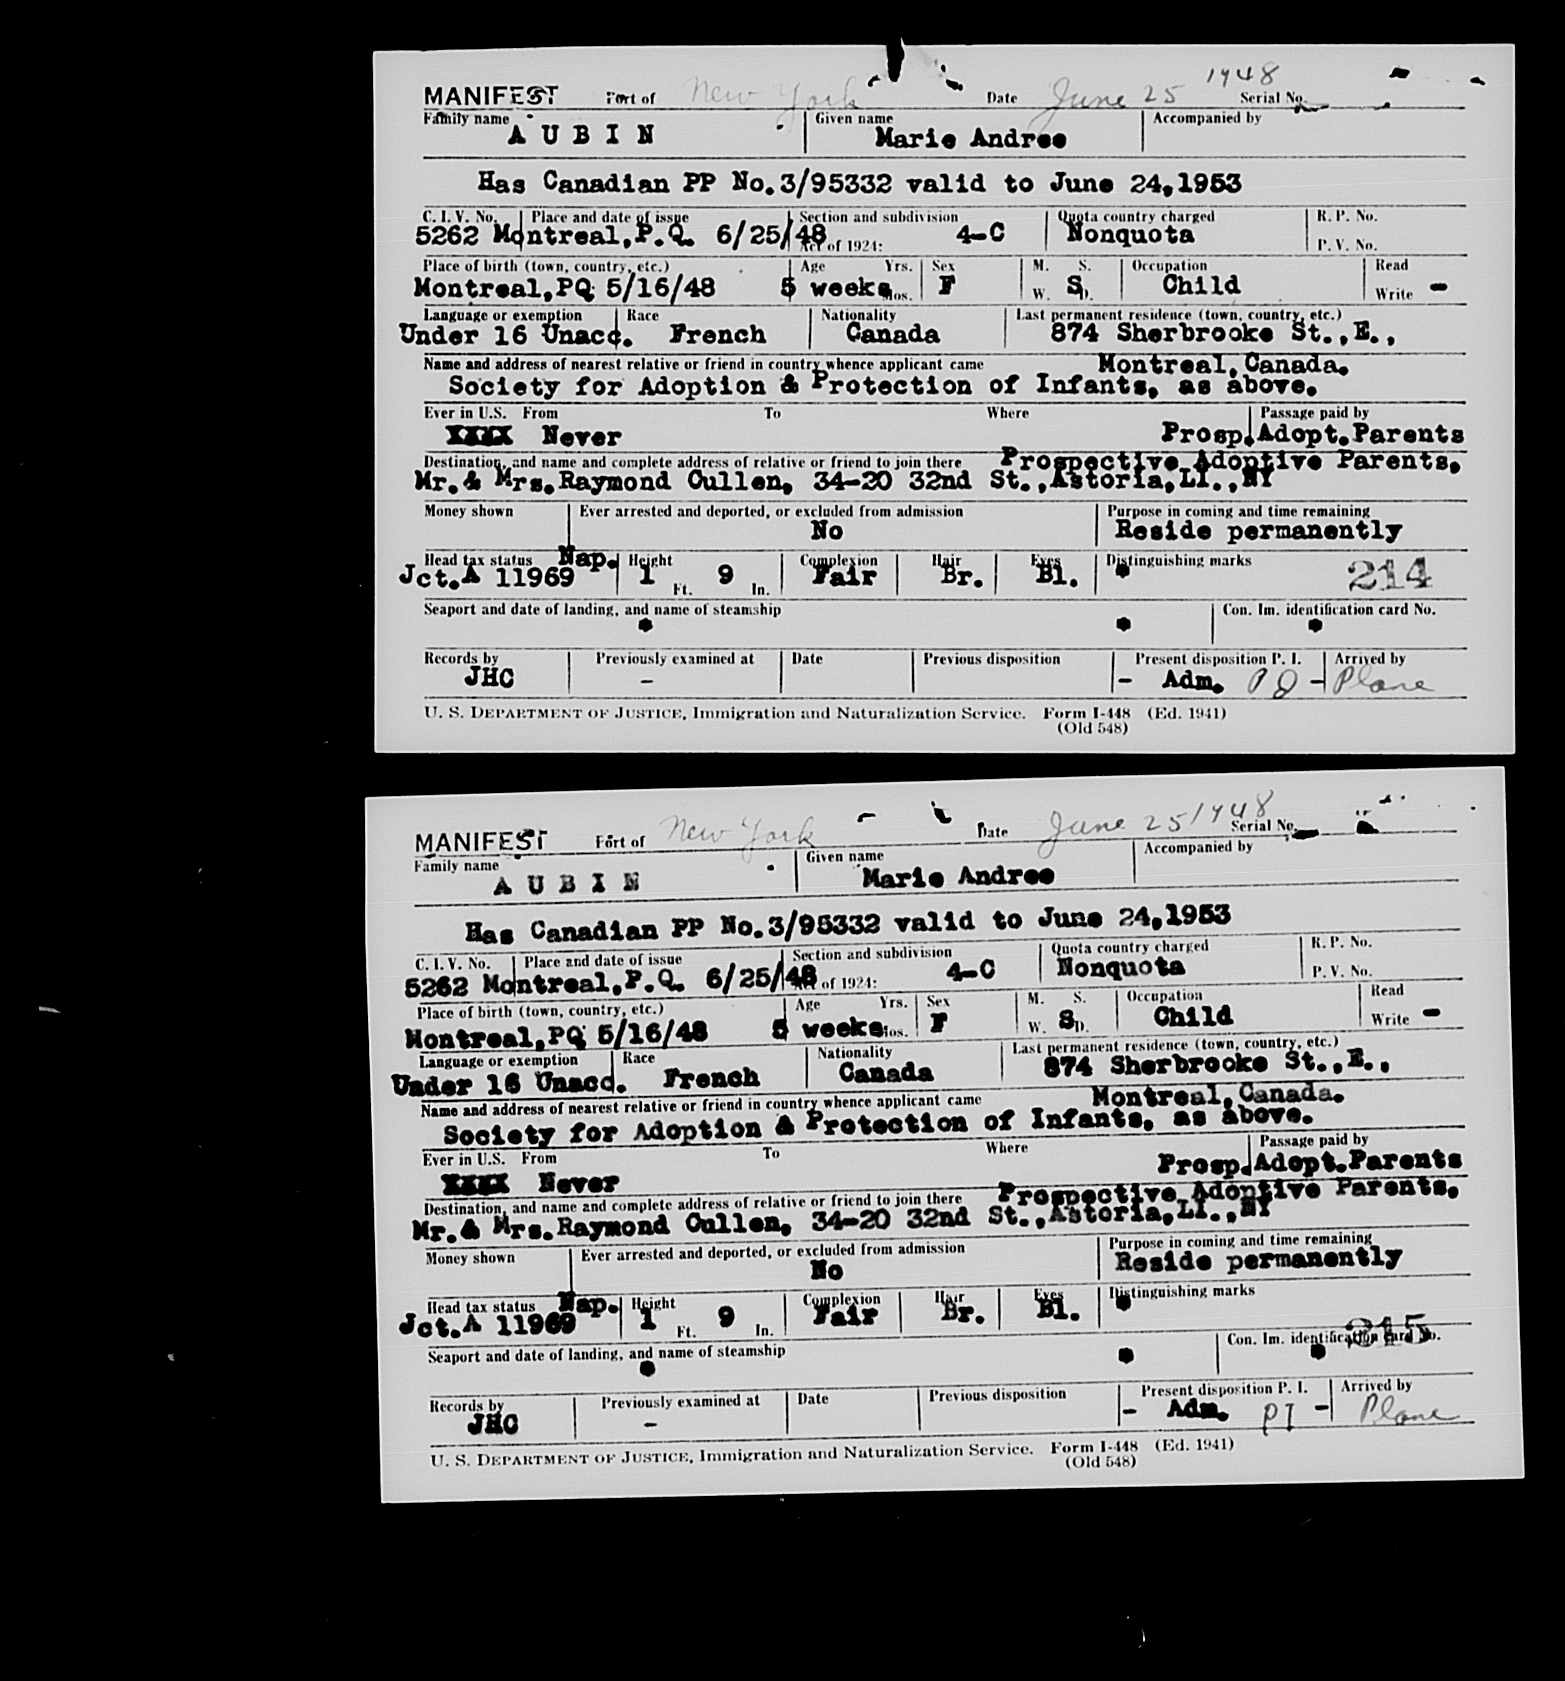 MANIFEST Port of New York Date June 25 1948 Serial No.
Family name Given name Accompanied by
A U B I N Marie Andree
Has Canadian PP No.3/95332 valid to June 24,1953
C. I. V. No. Place and date of issue Section and subdivision Quota country charged R. P. No.
5262 Montreal,P.Q. 6/25/48 Act of 1924: 4-C Nonquota P. V. No.
Place of birth (town, country, etc.) Age Yrs. Sex M. S. Occupation Read
Montreal,PQ 5/16/48 5 weeks Mos. F W. S D. Child Write -
Language or exemption Race Nationality Last permanent residence (town, country, etc.)
Under 16 Unacc. French Canada 874 Sherbrooke St.,E.,
Name and address of nearest relative or friend in country whence applicant came Montreal,Canada.
Society for Adoption & Protection of Infants, as above.
Ever in U.S. From To Where Passage paid by
XXXX Never Prosp.Adopt.Parents
Destination, and name and complete address of relative or friend to join there Prospective Adoptive Parents,
Mr.& Mrs.Raymond Cullen, 34-20 32nd St.,Astoria,LI.,NY
Money shown Ever arrested and deported, or excluded from admission Purpose in coming and time remaining
No Reside permanently
Head tax status Nap. Height Complexion Hair Eyes Distinguishing marks
Jct.A 11969 1 Ft. 9 In. Fair Br. Bl. 214
Seaport and date of landing, and name of steamship Con. Im. identification card No.
Records by Previously examined at Date Previous disposition Present disposition P. I. Arrived by
JHC - - Adm. - Plane
U. S. DEPARTMENT OF JUSTICE, Immigration and Naturalization Service. Form I-448 (Ed. 1941)
(Old 548)
MANIFEST Port of New York Date June 25 1948 Serial No.
Family name Given name Accompanied by
A U B I N Marie Andree
Has Canadian PP No.3/95332 valid to June 24,1953
C. I. V. No. Place and date of issue Section and subdivision Quota country charged R. P. No.
5262 Montreal,P.Q. 6/25/48 Act of 1924: 4-C Nonquota P. V. No.
Place of birth (town, country, etc.) Age Yrs. Sex M. S. Occupation Read
Montreal,PQ 5/16/48 5 weeks Mos. F W. S D. Child Write -
Language or exemption Race Nationality Last permanent residence (town, country, etc.)
Under 16 Unacc. French Canada 874 Sherbrooke St.,E.,
Name and address of nearest relative or friend in country whence applicant came Montreal,Canada.
Society for Adoption & Protection of Infants, as above.
Ever in U.S. From To Where Passage paid by
XXXX Never Prosp.Adopt.Parents
Destination, and name and complete address of relative or friend to join there Prospective Adoptive Parents,
Mr.& Mrs.Raymond Cullen, 34-20 32nd St.,Astoria,LI.,NY
Money shown Ever arrested and deported, or excluded from admission Purpose in coming and time remaining
No Reside permanently
Head tax status Nap. Height Complexion Hair Eyes Distinguishing marks
Jct.A 11969 1 Ft. 9 In. Fair Br. Bl.
Seaport and date of landing, and name of steamship Con. Im. identification card No. 215
Records by Previously examined at Date Previous disposition Present disposition P. I. Arrived by
JHC - - Adm. PI - Plane
U. S. DEPARTMENT OF JUSTICE, Immigration and Naturalization Service. Form I-448 (Ed. 1941)
(Old 548)